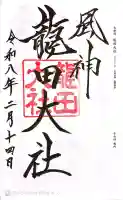 風神
龍田大社
龍田大社
令和八年二月十四日